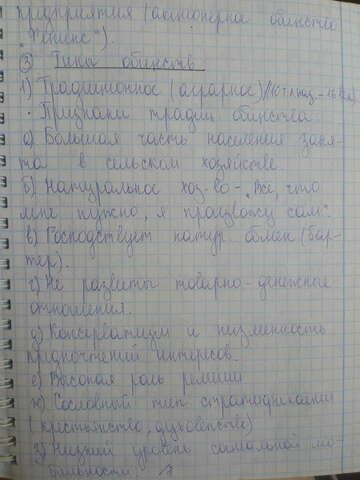 предприятия (акционерное общество
"Феникс").
③ Типы обществ
1) Традиционное (аграрное)
Признаки традиц. общества
а) Большая часть населения заня-
та в сельском хозяйстве
б) Натуральное хоз-во - "Все, что
мне нужно, я произвожу сам".
в) Господствует натур. обмен (бар-
тер).
г) Не развиты товарно-денежные
отношения.
д) Консерватизм и неизменность
предпочтений интересов.
е) Высокая роль религии
ж) Сословный тип стратификации
(крестьянство, духовенство)
з) Низкий уровень социальной мо-
бильности